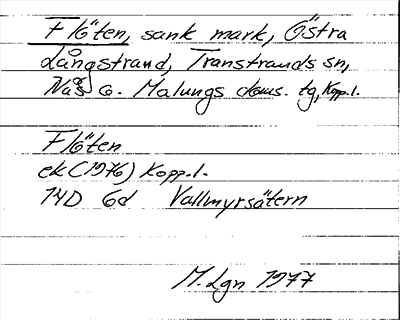 Flöten, sank mark, Östra
Långstrand, Transtrands sn,
Nås o. Malungs doms. tg, Kopp. l.
Flöten
ek (1976) Kopp. l.
14D 6d Vallmyrsätern
M. Lgn 1977